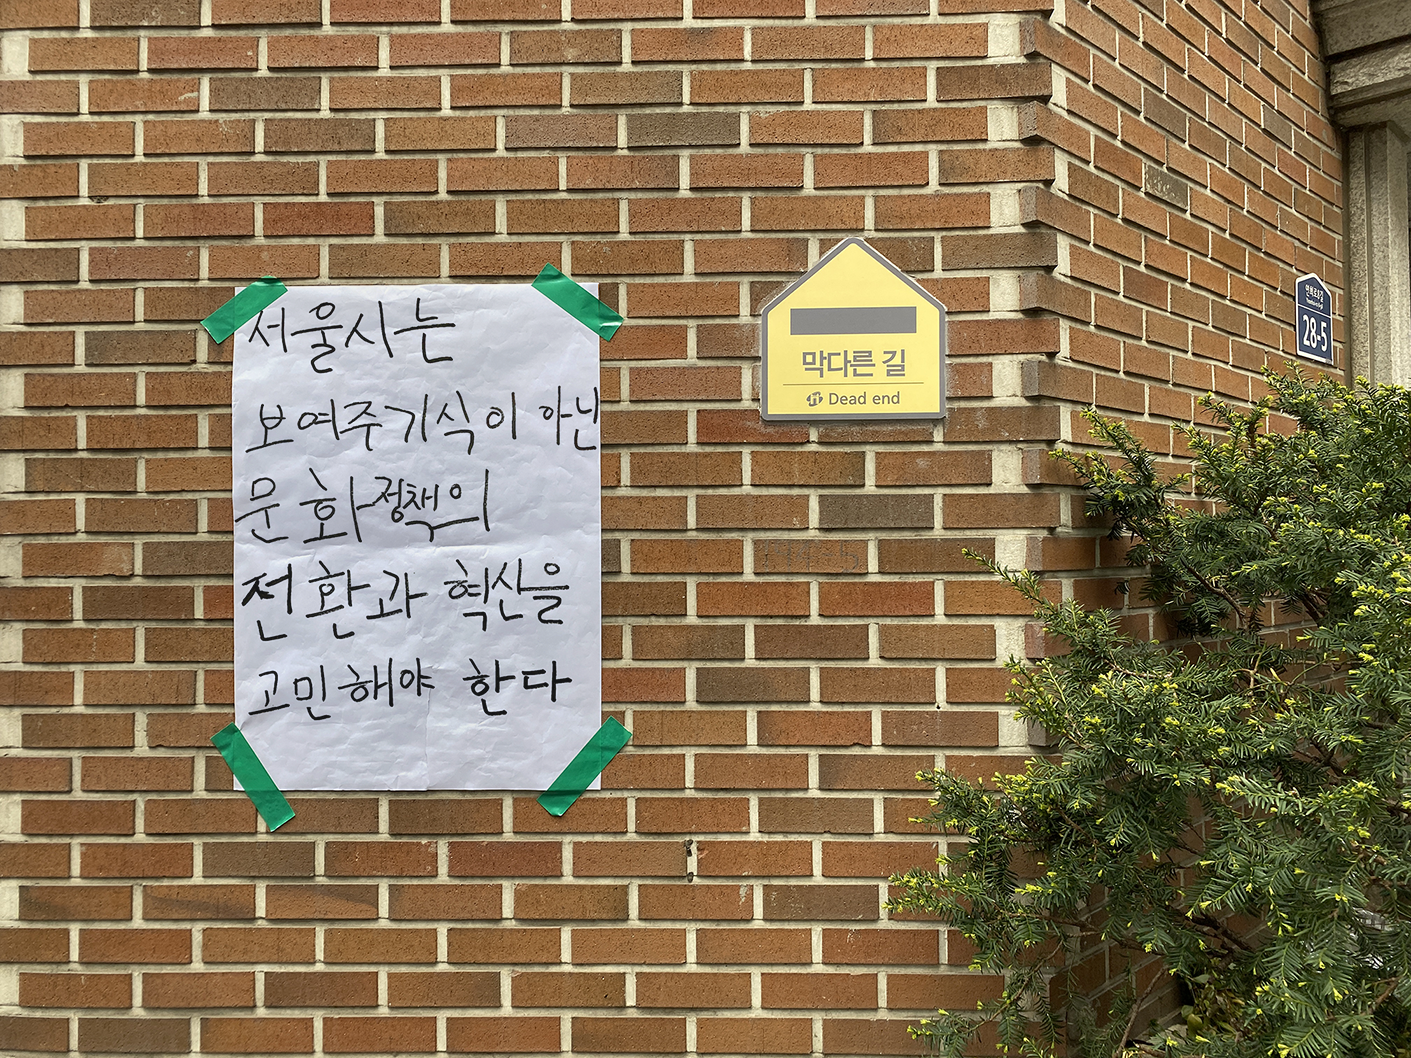 서울시는
보여주기식이 아닌
문화정책의
전환과 혁신을
고민해야 한다
막다른 길
Dead end
28-5